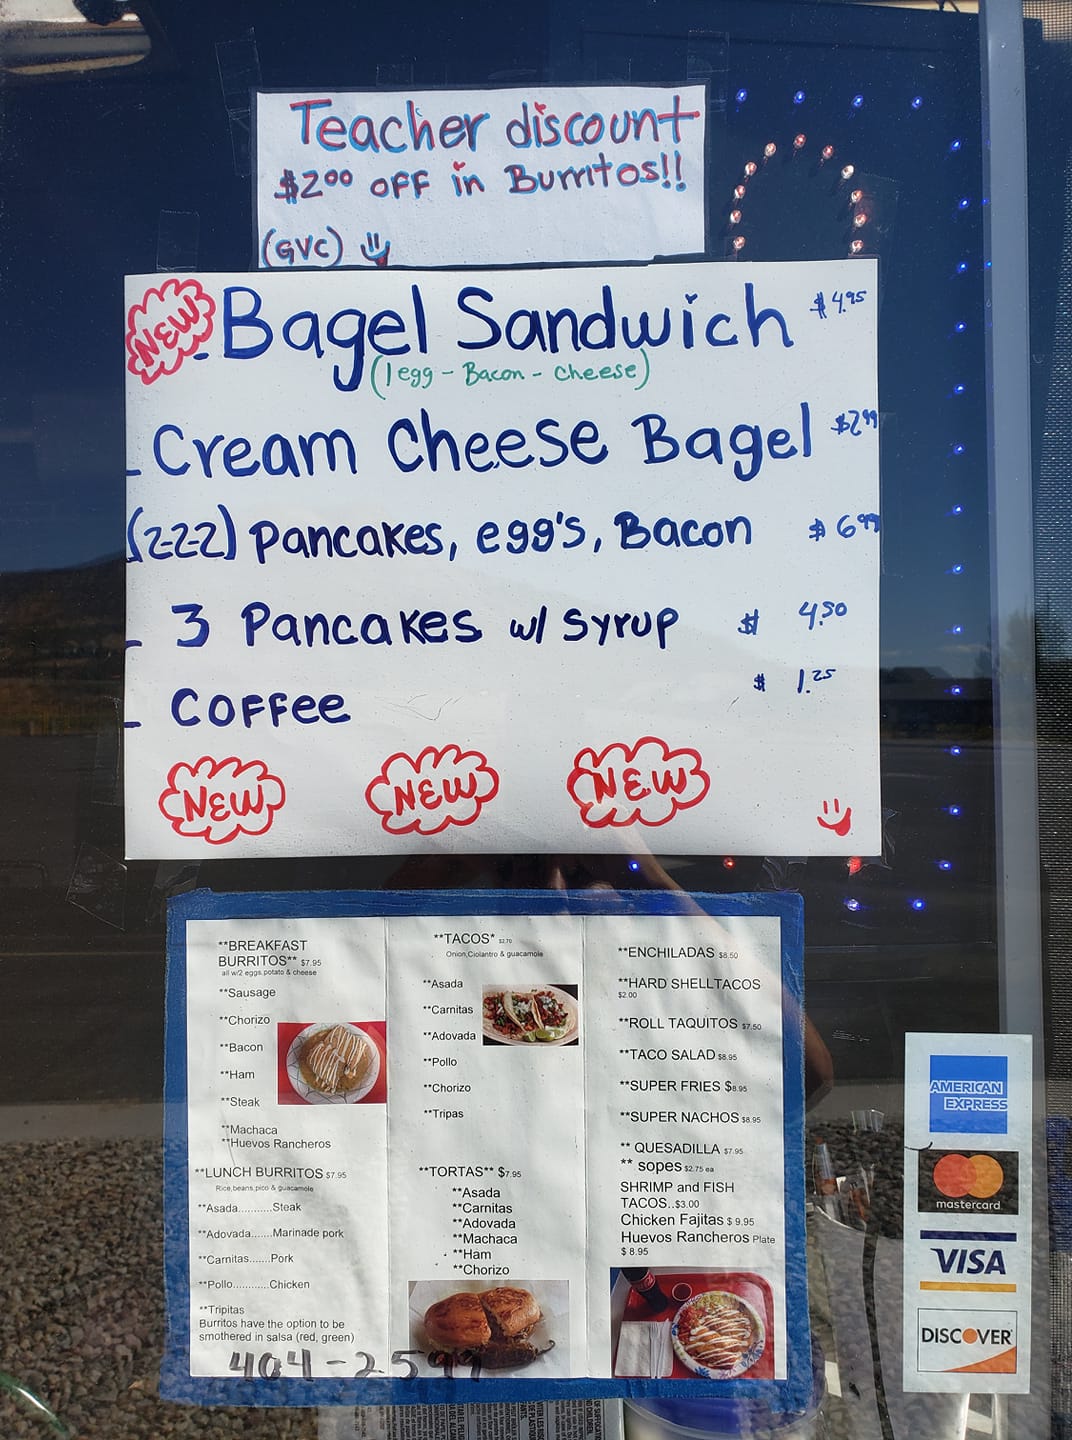 Teacher discount
$2.00 OFF in Burritos!!
(GVC)
NEW
- Bagel Sandwich $4.95
(1 egg - Bacon - cheese)
- Cream Cheese Bagel $2.99
(2-2-2) Pancakes, egg's, Bacon $6.99
- 3 Pancakes w/ Syrup $ 4.50
- Coffee $ 1.25
NEW NEW NEW
**BREAKFAST
BURRITOS** $7.95
all w/2 eggs,potato & cheese
**Sausage
**Chorizo
**Bacon
**Ham
**Steak
**Machaca
**Huevos Rancheros
**LUNCH BURRITOS $7.95
Rice,beans,pico & guacamole
**Asada..........Steak
**Adovada......Marinade pork
**Carnitas.......Pork
**Pollo............Chicken
**Tripitas
Burritos have the option to be
smothered in salsa (red, green)
404-2599
**TACOS* $2.70
Onion,Ciolantro & guacamole
**Asada
**Carnitas
**Adovada
**Pollo
**Chorizo
**Tripas
**TORTAS** $7.95
**Asada
**Carnitas
**Adovada
**Machaca
**Ham
**Chorizo
**ENCHILADAS $8.50
**HARD SHELLTACOS
$2.00
**ROLL TAQUITOS $7.50
**TACO SALAD $8.95
**SUPER FRIES $8.95
**SUPER NACHOS $8.95
** QUESADILLA $7.95
** sopes $2.75 ea
SHRIMP and FISH
TACOS..$3.00
Chicken Fajitas $ 9.95
Huevos Rancheros Plate
$ 8.95
AMERICAN
EXPRESS
mastercard
VISA
DISCOVER